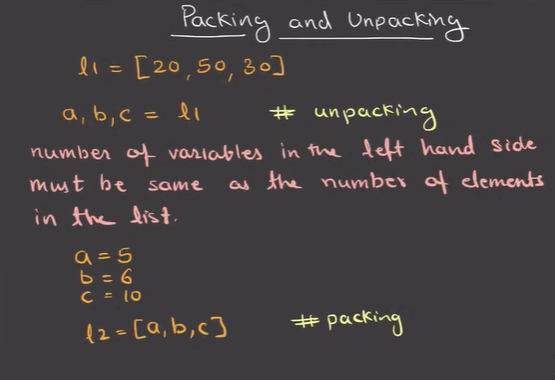 Packing and Unpacking
l1 = [20, 50, 30]
a, b, c = l1 # unpacking
number of variables in the left hand side
must be same as the number of elements
in the list.
a = 5
b = 6
c = 10
l2 = [a, b, c] # packing